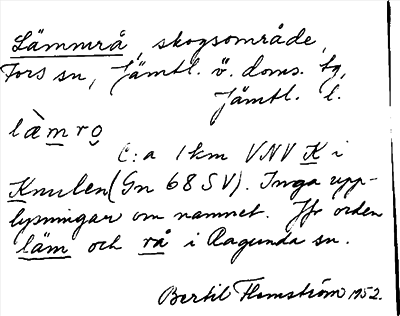 Lämmrå, skogsområde,
Fors sn, Jämtl. ö. doms. tg,
Jämtl. l.
læ̀mro̬
C:a 1 km VNV K i
Knulen (Gn 68 SV). Inga upp-
lysningar om namnet. Jfr orden
läm och rå i Ragunda sn.
Bertil Flemström 1952.